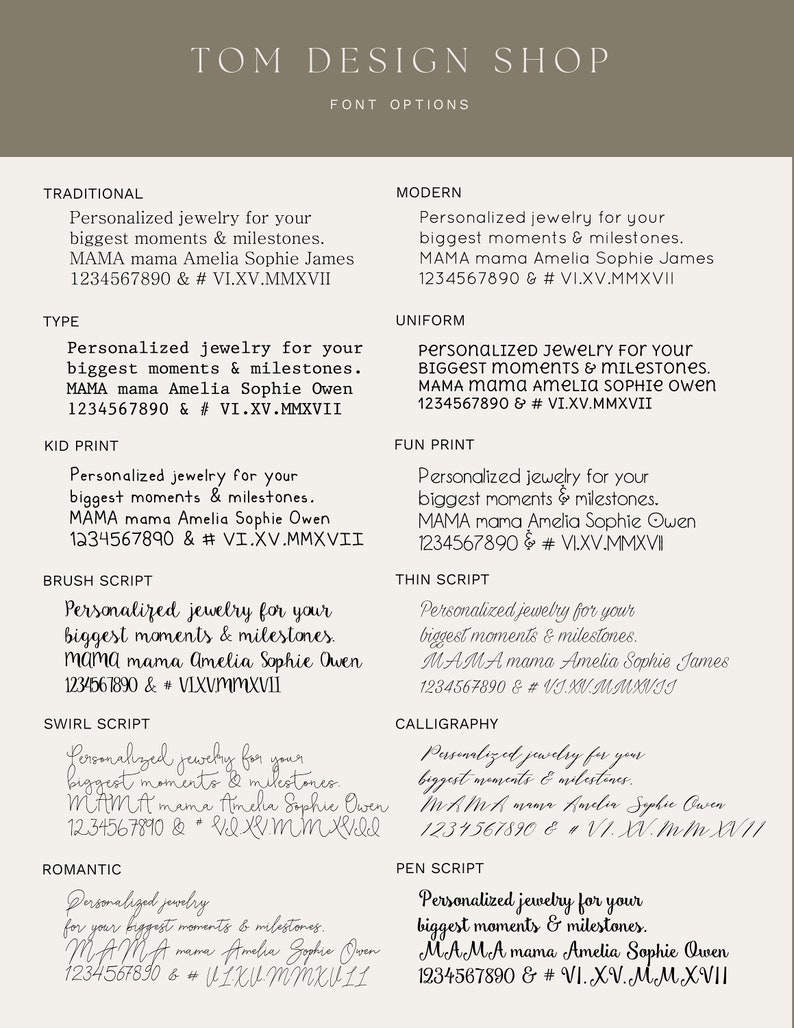 TOM DESIGN SHOP
FONT OPTIONS
TRADITIONAL
Personalized jewelry for your
biggest moments & milestones.
MAMA mama Amelia Sophie James
1234567890 & # VI.XV.MMXVII
MODERN
Personalized jewelry for your
biggest moments & milestones.
MAMA mama Amelia Sophie James
1234567890 & # VI.XV.MMXVII
TYPE
Personalized jewelry for your
biggest moments & milestones.
MAMA mama Amelia Sophie Owen
1234567890 & # VI.XV.MMXVII
UNIFORM
Personalized jewelry for your
biggest moments & milestones.
MAMA mama Amelia Sophie Owen
1234567890 & # VI.XV.MMXVII
KID PRINT
Personalized jewelry for your
biggest moments & milestones.
MAMA mama Amelia Sophie Owen
1234567890 & # VI.XV.MMXVII
FUN PRINT
Personalized jewelry for your
biggest moments & milestones.
MAMA mama Amelia Sophie Owen
1234567890 & # VI.XV.MMXVII
BRUSH SCRIPT
Personalized jewelry for your
biggest moments & milestones.
MAMA mama Amelia Sophie Owen
1234567890 & # VI.XV.MMXVII
THIN SCRIPT
Personalized jewelry for your
biggest moments & milestones.
MAMA mama Amelia Sophie James
1234567890 & # VI.XV.MMXVII
SWIRL SCRIPT
Personalized jewelry for your
biggest moments & milestones.
MAMA mama Amelia Sophie Owen
1234567890 & # VI.XV.MMXVII
CALLIGRAPHY
Personalized jewelry for your
biggest moments & milestones.
MAMA mama Amelia Sophie Owen
1234567890 & # VI.XV.MMXVII
ROMANTIC
Personalized jewelry
for your biggest moments & milestones.
MAMA mama Amelia Sophie Owen
1234567890 & # VI.XV.MMXVII
PEN SCRIPT
Personalized jewelry for your
biggest moments & milestones.
MAMA mama Amelia Sophie Owen
1234567890 & # VI.XV.MMXVII